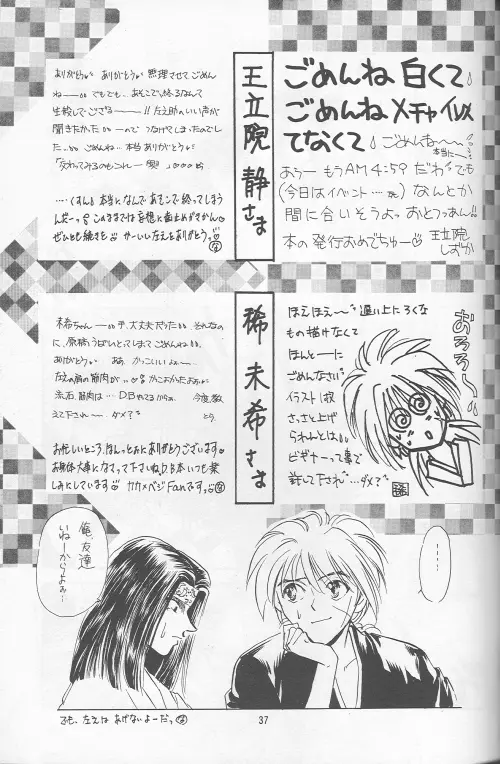 王立院 静さま
ごめんね 白くて
ごめんね メチャイソメ
てなくて
ごめんね〜〜
本当に〜
あうー もうAM4:59 だわ でも
(今日はイベント……在) なんとか
間に合いそうよっ おとっつぁん!!
本の発行おめでちゅー♡
王立院
しずか
ありがとう ありがとう 無理させて ごめん
ねー でもでも、あそこで終るなんて
生殺しでござるー!! 左之助のいい声が
聞きたかった
ので つなげてしまったのでし
た ごめんね… 本当ありがとう
「交わってみるのもこれ一興」
……くすん 本当になんで あそこで 終ってしまう
んだーっ このままでは妄想に歯止めがきかん
ぜひとも続きを かーいい左えをありがとうっ
稀 未希さま
ほえほえ〜 遅い上にろくな
もの描けなくて
ほんとーに
ごめんなさい
イラスト1枚
さっさと上げ
られんとは
ビギナーって事で
許して下され …ダメ?
おろろん
未希ちゃん 大丈夫だった それなの
に、原稿うばいとってしまって ごめんね
ありがとう ああ、かっこいいよー
左えの肩の筋肉が…
流石、筋肉は…DBやってるからぁ 今度、教
えて下され ダメ?
お忙しいところ、ほんっとーにありがとうございます
お身体大事になさって下さいね D.B本いつも楽
しみにしています カカベジFanですっ
俺、友達
いねーからよぉ…
‥‥
でも、左えは あげないよーだっ
37